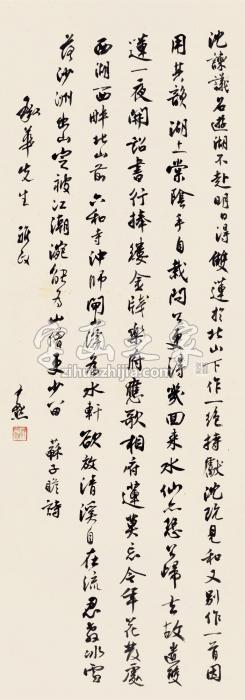 沈諫議召遊湖不赴明日得雙蓮於北山下作一絕持獻沈既見和又別作一首因
用其韻湖上棠陰手自栽問公更得幾回來水仙亦恐公歸去故遣雙
蓮一夜開詔書行捧縷金牋樂府應歌相府蓮莫忘今年花發處
西湖西畔北山前 六和寺沖師閘山溪為水軒 欲放清溪自在流忍教冰雪
落沙洲出山定被江潮涴能為山僧更少留 蘇子瞻詩
華先生 雅政 尹默